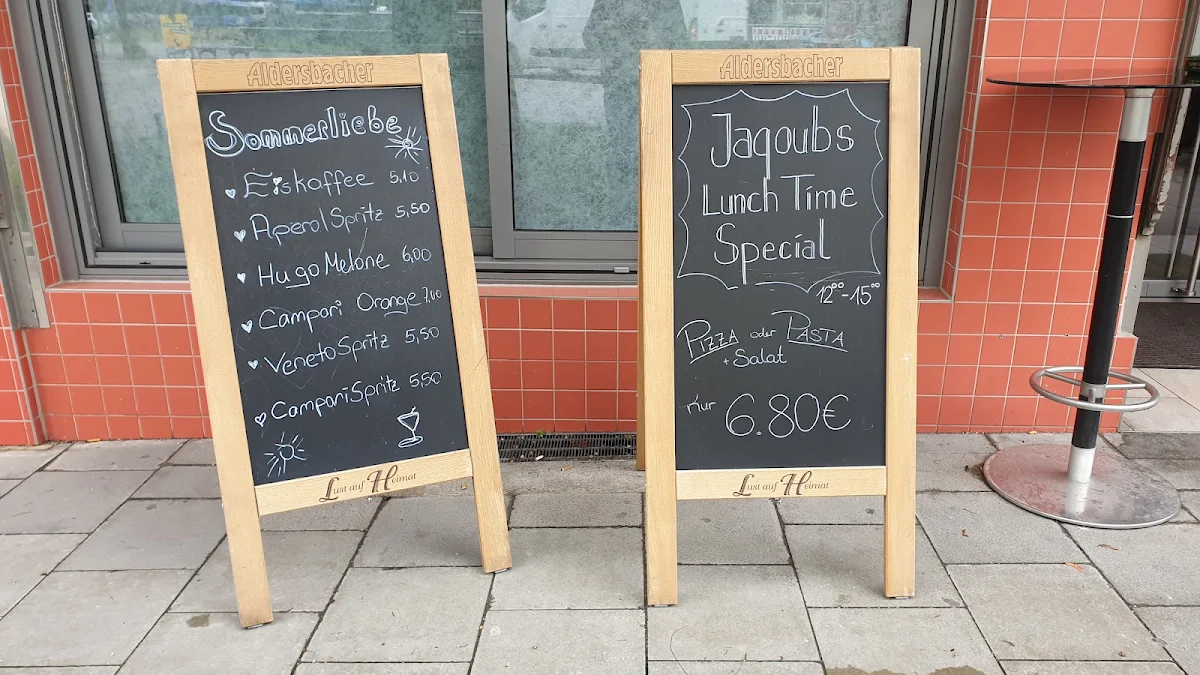 Aldersbacher
Sommerliebe
Eiskaffee 5,10
Aperol Spritz 5,50
Hugo Melone 6,00
Campari Orange 7,00
Veneto Spritz 5,50
Campari Spritz 5,50
Lust auf Heimat
Aldersbacher
Jaqoubs
Lunch Time
Special
12⁰⁰-15⁰⁰
Pizza oder Pasta
+ Salat
nur 6.80€
Lust auf Heimat